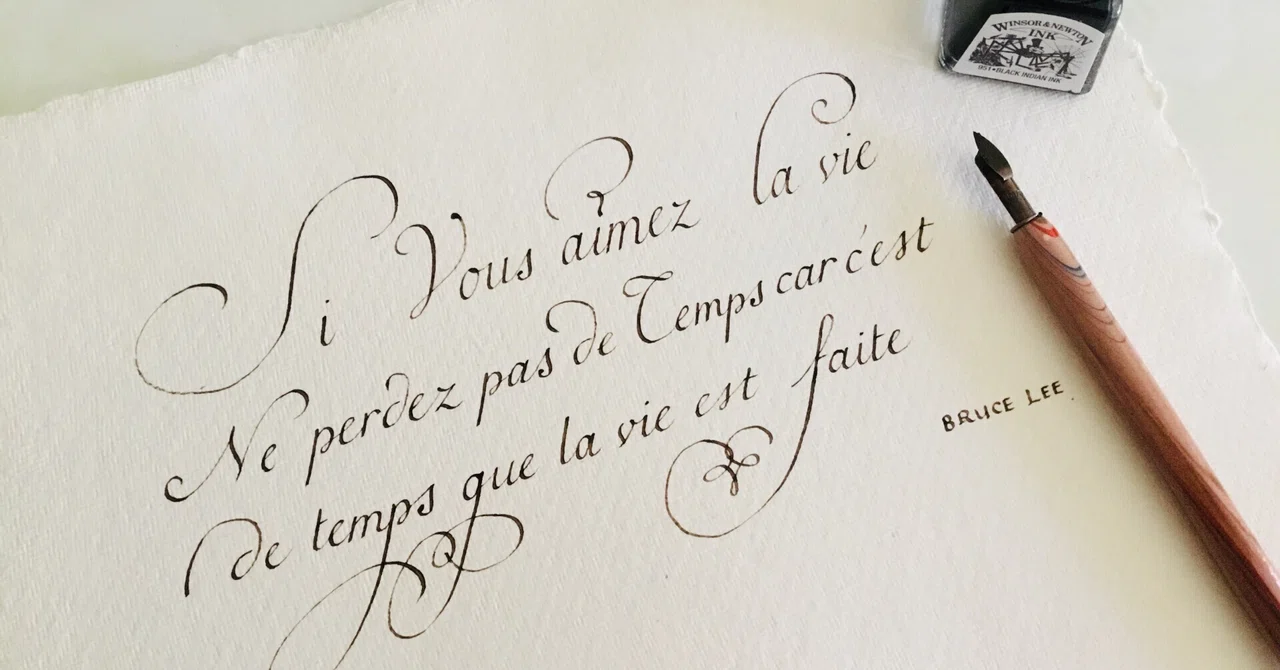 WINSOR & NEWTON
INK
951 • BLACK INDIAN INK
Si Vous aimez la vie
Ne perdez pas de Temps car c'est
de temps que la vie est faite
BRUCE LEE.